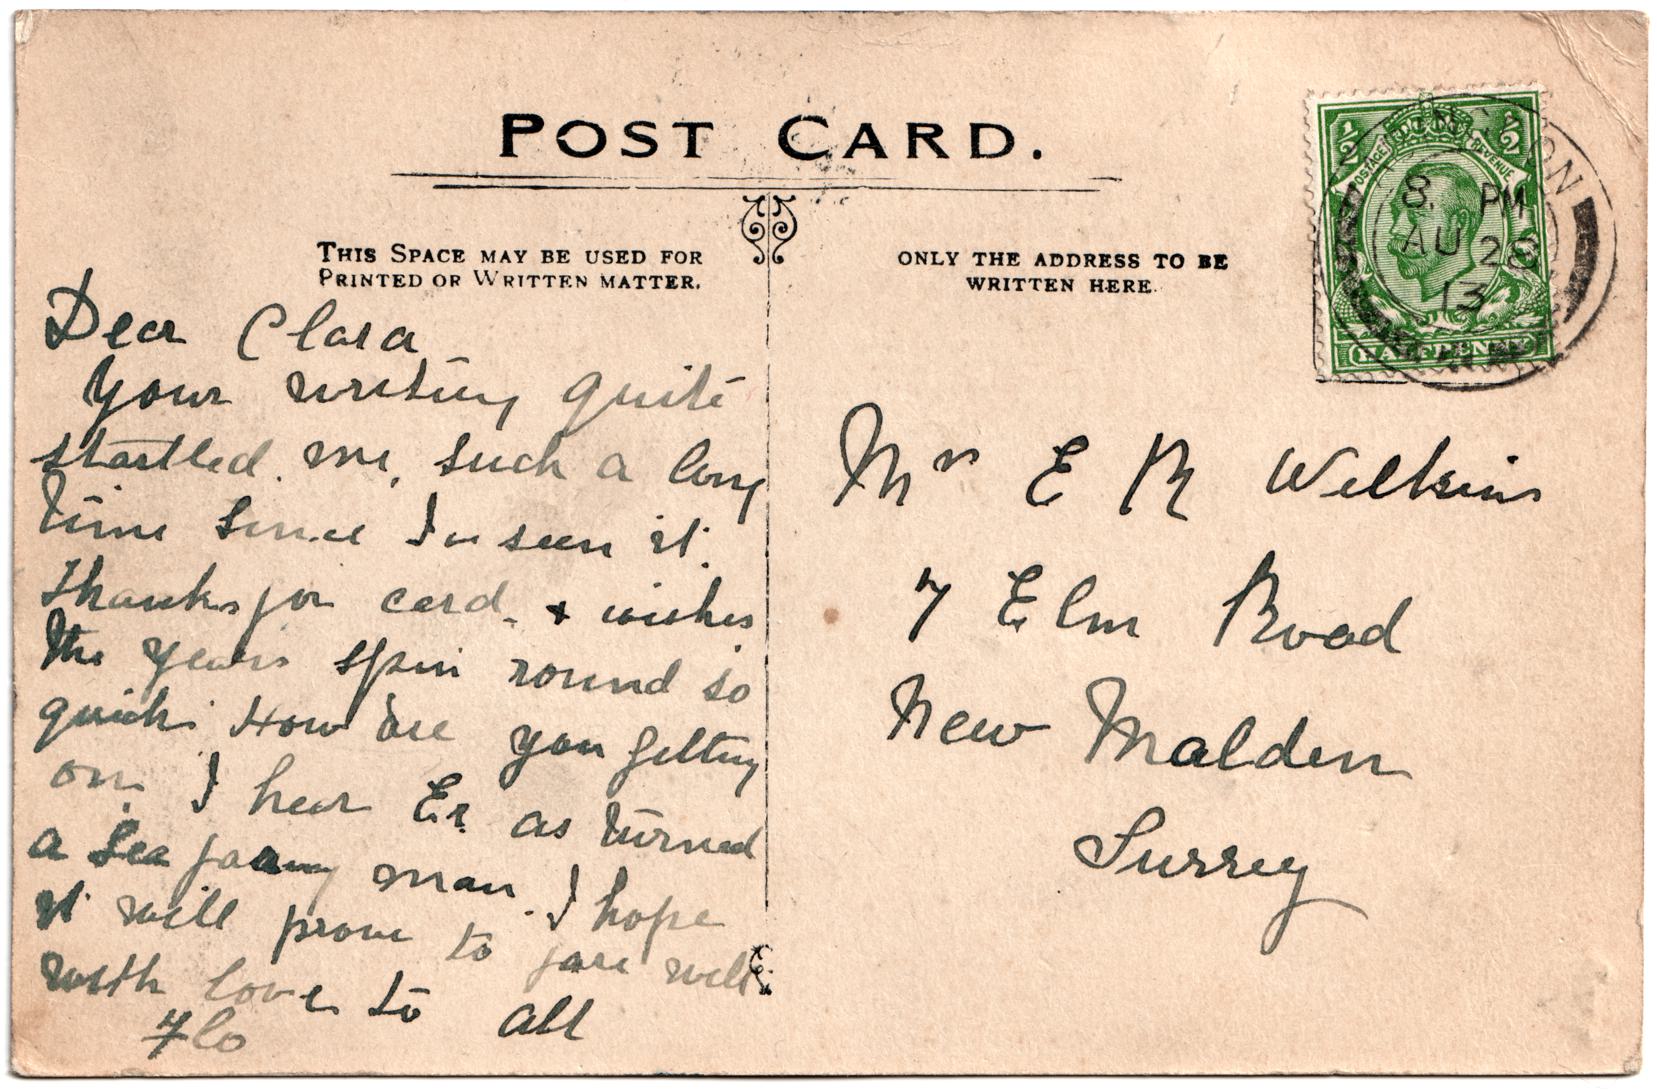 POST CARD.
THIS SPACE MAY BE USED FOR
PRINTED OR WRITTEN MATTER.
ONLY THE ADDRESS TO BE
WRITTEN HERE.
½ ½
POSTAGE REVENUE
HALFPENNY
8. PM
AU 28
13
Dear Clara
Your writing quite
startled me, such a long
time since I seen it.
Thanks for card. + wishes
the years spin round so
quick. How are you getting
on. I hear Er. as turned
a Sea faring man. I hope
it will prove to fare well
with love to all
Flo
Mrs E R Wilkins
7 Elm Road
New Malden
Surrey